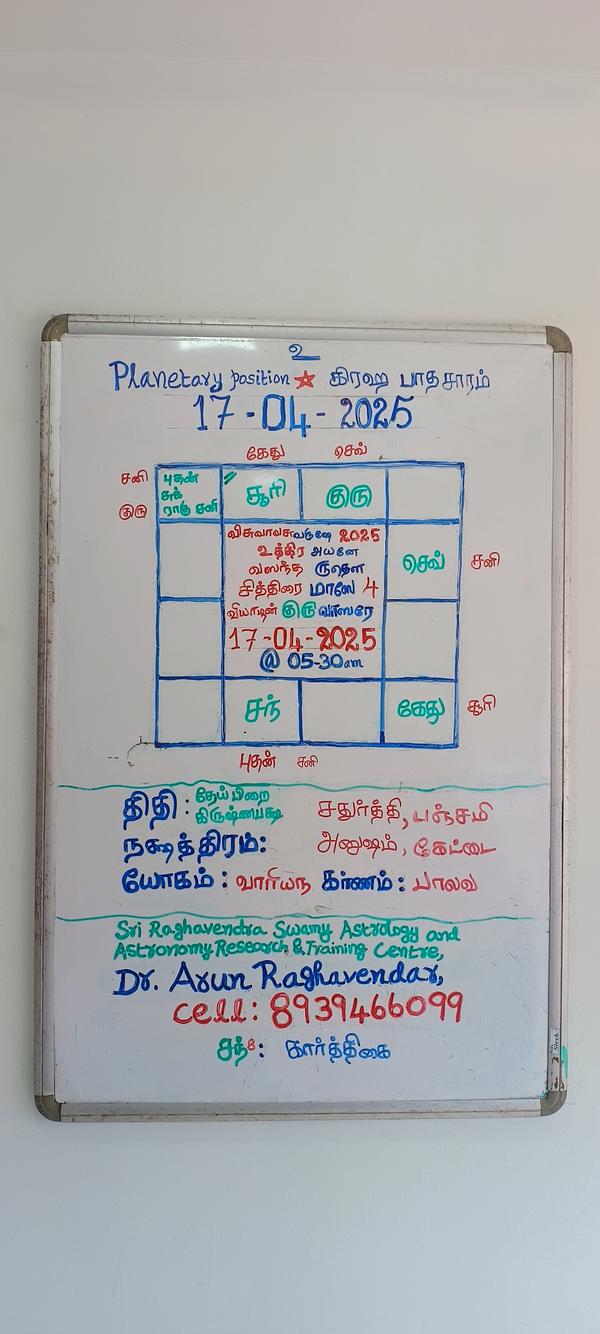 உ
Planetary position ★ கிரஹ பாதசாரம்
17-04-2025
கேது செவ்
சனி
குரு
புதன்
சுக்
ராகு சனி
சூரி
குரு
விசுவாவசுவருஷே 2025
உத்திர அயனே
வஸந்த ருதௌ
சித்திரை மாஸே 4
வியாழன் குரு வாஸரே
17-04-2025
@ 05-30am
செவ்
சனி
சந்
கேது
சூரி
புதன் சனி
திதி : தேய்பிறை
கிருஷ்ணபக்ஷ
சதுர்த்தி, பஞ்சமி
நக்ஷத்திரம்: அனுஷம், கேட்டை
யோகம் : வாரியந கரணம் : பாலவ
Sri Raghavendra Swamy Astrology and
Astronomy Research & Training Centre,
Dr. Arun Raghavendar,
cell: 8939466099
சந்8: கார்த்திகை